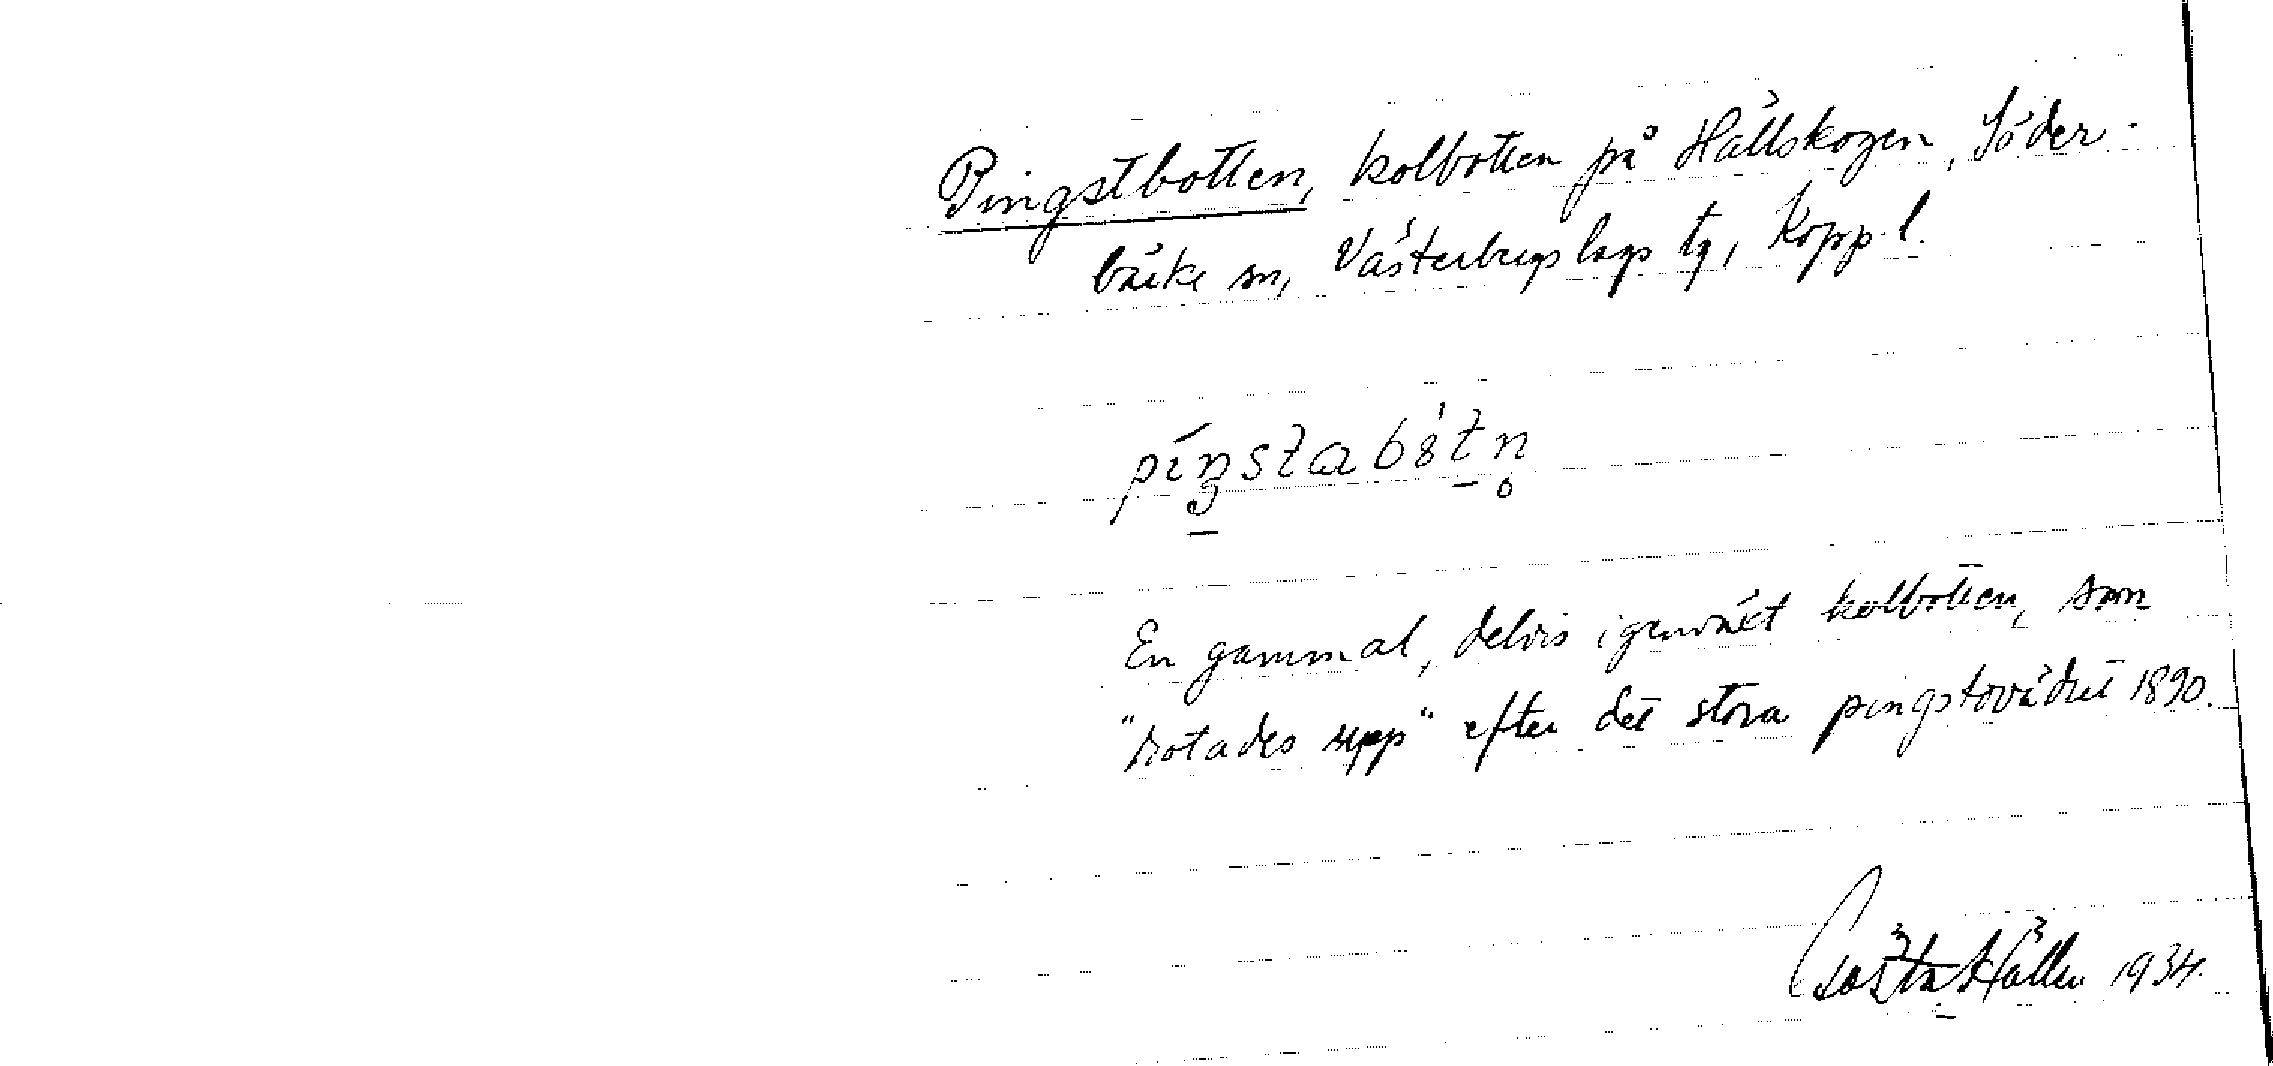 Pingstbotten, kolbotten på Hällskogen, Söder-
bärke sn, Västerbergslags tg, Kopp. l.
pi​ŋstabòtn̥
En gammal, delvis igenväxt kolbotten, som
"rotades upp" efter det stora pingstovädret 1890.
Gösta Hällen 1934.